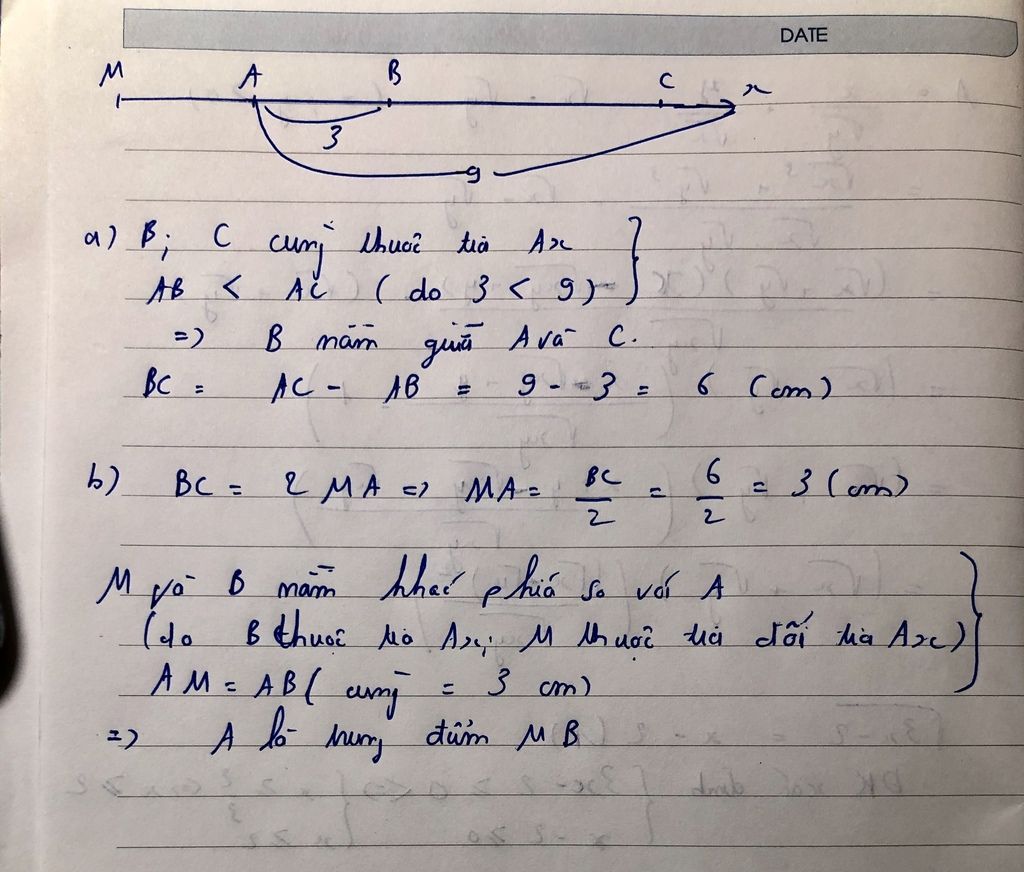 DATE
M A B C x
3
9
a) B; C cùng thuộc tia Ax
AB < AC ( do 3 < 9)
=> B nằm giữa A và C.
BC = AC - AB = 9 - 3 = 6 (cm)
b) BC = 2 MA => MA = BC/2 = 6/2 = 3 (cm)
M và B nằm khác phía so với A
(do B thuộc tia Ax; M thuộc tia đối tia Ax)
AM = AB ( cùng = 3 cm)
=> A là trung điểm MB